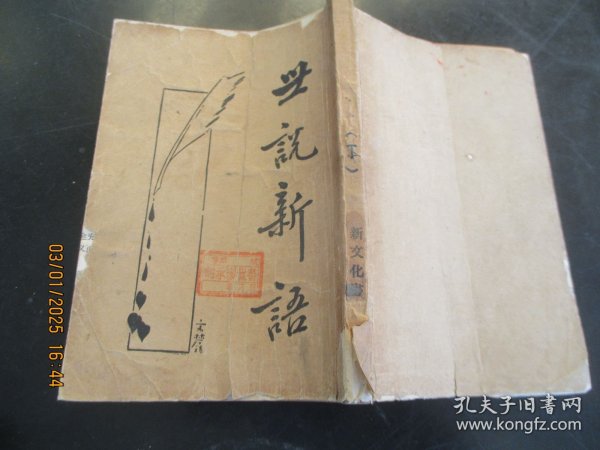 世說新語
（下）
新文化書
03/01/2025 16:44
孔夫子旧书网
www.kongfz.com